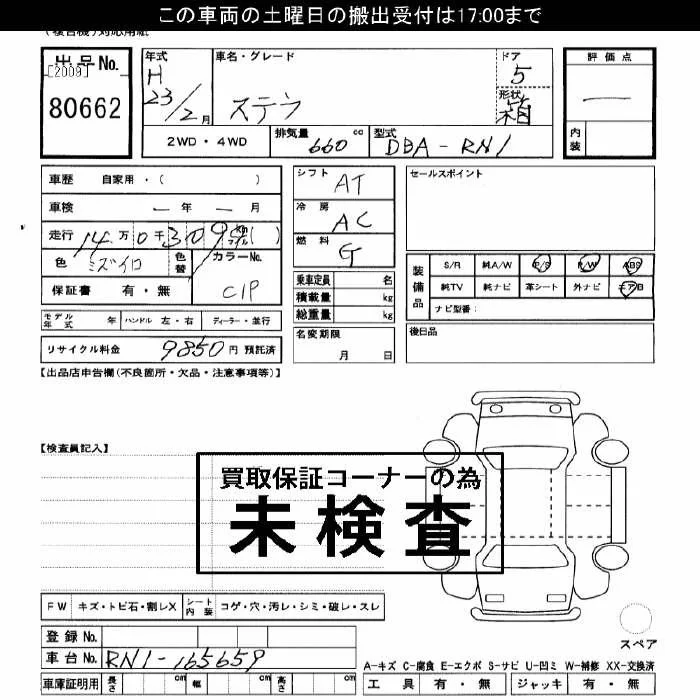 この車両の土曜日の搬出受付は17:00まで
出品No.
[2009]
80662
年式
H
23/2月
車名・グレード
ステラ
ドア
5
形状
箱
評価点
―
内装
2WD・4WD
排気量 660 cc
型式 DBA-RN1
車歴 自家用・( )
車検 ー年ー月
走行 14万0千309 km マイル ( )
色 ミズイロ
色替
カラーNo.
C1P
保証書 有・無
シフト AT
冷房 AC
燃料 G
乗車定員 名
積載量 kg
総重量 kg
セールスポイント
装備品
S/R 純A/W P/S P/W ABS
純TV 純ナビ 革シート 外ナビ エアB
ナビ型番:
モデル年式 年 ハンドル 左・右 ディーラー・並行
名変期限
月 日
後日品
リサイクル料金 9850円 預託済
【出品店申告欄(不良箇所・欠品・注意事項等)】
【検査員記入】
買取保証コーナーの為
未検査
FW キズ・トビ石・割レX シート内装 コゲ・穴・汚レ・シミ・破レ・スレ
登録No.
車台No. RN1-165659
車庫証明用 長さ cm 幅 cm 高さ cm
スペア
A-キズ C-腐食 E-エクボ S-サビ U-凹ミ W-補修 XX-交換済
工具 有・無 ジャッキ 有・無